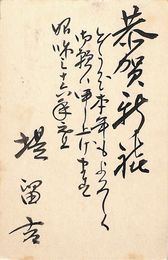 恭賀新禧
どうか本年もよろしく
御願い申し上げます
昭和三十六年元旦
堤留吉